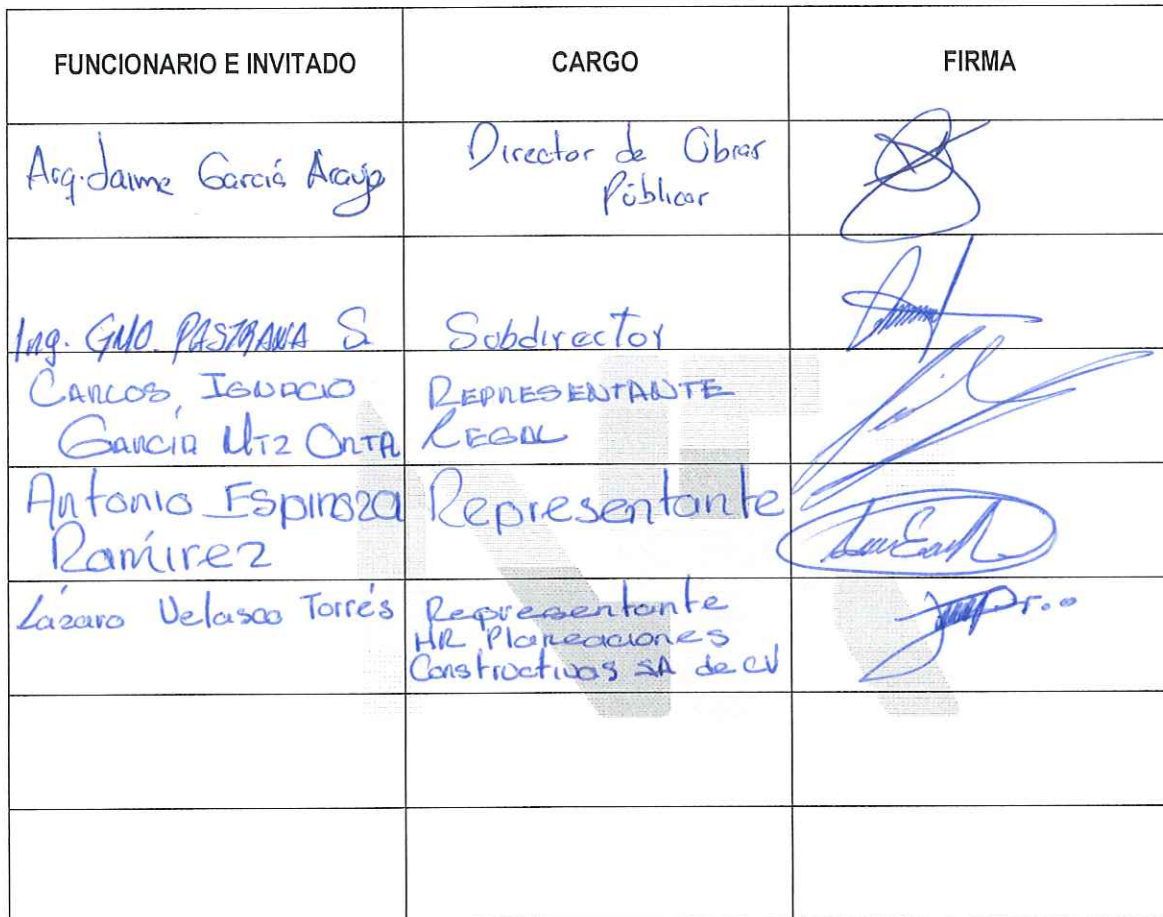 FUNCIONARIO E INVITADO
CARGO
FIRMA
Arq. Jaime García Araujo
Director de Obras
Públicas
Ing. GMO. PASTRANA S.
Subdirector
CARLOS IGNACIO
GARCIA MTZ ORTA
REPRESENTANTE
LEGAL
Antonio Espinoza
Ramírez
Representante
Lázaro Velasco Torrés
Representante
HR Planeaciones
Constructivas SA de CV